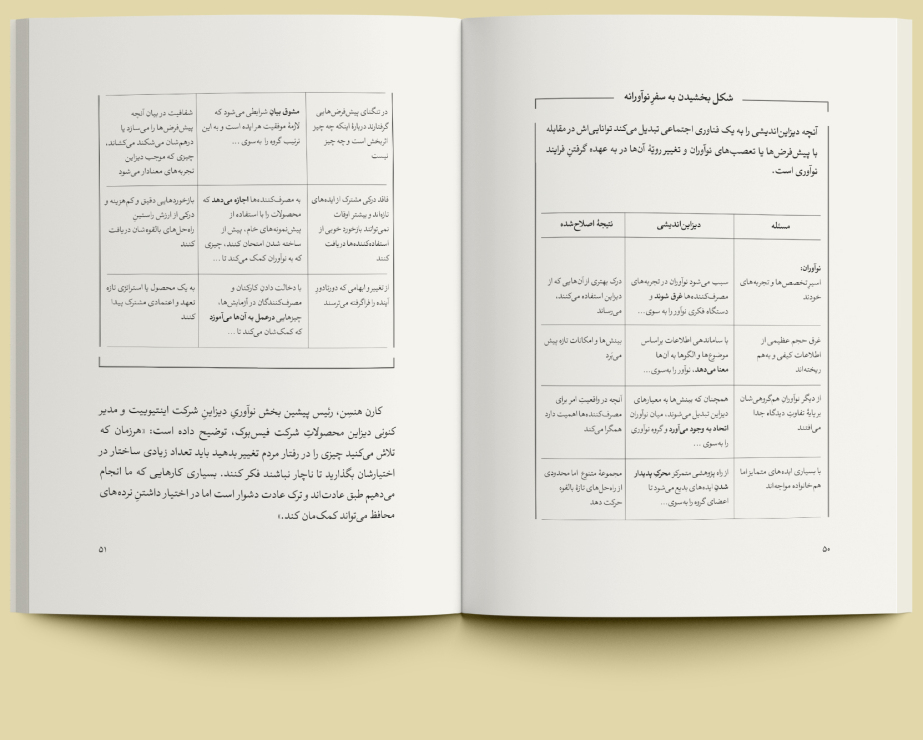 شکل بخشیدن به سفر نوآورانه
آنچه دیزاین‌اندیشی را به یک فناوری اجتماعی تبدیل می‌کند توانایی‌اش در مقابله
با پیش‌فرض‌ها یا تعصب‌های نوآوران و تغییر رویّهٔ آن‌ها در به عهده گرفتنِ فرایند
نوآوری است.
مسئله
دیزاین‌اندیشی
نتیجهٔ اصلاح‌شده
نوآوران:
اسیر تخصص‌ها و تجربه‌های
خودند
سبب می‌شود نوآوران در تجربه‌های
مصرف‌کننده‌ها غرق شوند و
دستگاه فکری نوآور را به سوی...
درک بهتری از آن‌هایی که از
دیزاین استفاده می‌کنند،
می‌رساند
غرق حجم عظیمی از
اطلاعات کیفی و به‌هم
ریخته‌اند
با ساماندهی اطلاعات براساس
موضوع‌ها و الگوها به آن‌ها
معنا می‌دهد، نوآور را به‌سوی...
بینش‌ها و امکانات تازه پیش
می‌برد
از دیگر نوآوران هم‌گروهی‌شان
بر پایهٔ تفاوت دیدگاه جدا
می‌افتند
همچنان که بینش‌ها به معیارهای
دیزاین تبدیل می‌شوند، میان نوآوران
اتحاد به وجود می‌آورد و گروه نوآوری
را به‌سوی ...
آنچه در واقعیت امر برای
مصرف‌کننده‌ها اهمیت دارد
همگرا می‌کند
با بسیاری ایده‌های متمایز اما
هم‌خانواده مواجه‌اند
از راه پژوهشی متمرکز محرکِ پدیدار
شدنِ ایده‌های بدیع می‌شود تا
اعضای گروه را به‌سوی...
مجموعهٔ متنوع اما محدودی
از راه‌حل‌های تازهٔ بالقوه
حرکت دهد
۵۰
در تنگنای پیش‌فرض‌هایی
گرفتارند دربارهٔ اینکه چه چیز
اثربخش است و چه چیز
نیست
مشوق بیانِ شرایطی می‌شود که
لازمهٔ موفقیت هر ایده است و به این
ترتیب گروه را به‌سوی ...
شفافیت در بیان آنچه
پیش‌فرض‌ها را می‌سازد یا
درهم‌شان می‌شکند می‌کشاند،
چیزی که موجب دیزاین
تجربه‌های معنادار می‌شود
فاقد درکی مشترک از ایده‌های
تازه‌اند و بیشتر اوقات
نمی‌توانند بازخورد خوبی از
استفاده‌کننده‌ها دریافت
کنند
به مصرف‌کننده‌ها اجازه می‌دهد که
محصولات را با استفاده از
پیش‌نمونه‌های خام، پیش از
ساخته شدن امتحان کنند، چیزی
که به نوآوران کمک می‌کند تا ...
بازخوردهایی دقیق و کم‌هزینه و
درکی از ارزش راستینِ
راه‌حل‌های بالقوه‌شان دریافت
کنند
از تغییر و ابهامی که دورتادورِ
آینده را فراگرفته می‌ترسند
با دخالت دادن کارکنان و
مصرف‌کنندگان در آزمایش‌ها،
چیزهایی درعمل به آن‌ها می‌آموزد
که کمک‌شان می‌کند تا ...
به یک محصول یا استراتژی تازه
تعهد و اعتمادی مشترک پیدا
کنند
کارن هنسِن، رئیس پیشین بخش نوآوریِ دیزاینِ شرکت اینتیوییت و مدیر
کنونی دیزاین محصولاتِ شرکت فیس‌بوک، توضیح داده است: «هرزمان که
تلاش می‌کنید چیزی را در رفتار مردم تغییر بدهید باید تعداد زیادی ساختار در
اختیارشان بگذارید تا ناچار نباشند فکر کنند. بسیاری کارهایی که ما انجام
می‌دهیم طبق عادت‌اند و ترک عادت دشوار است اما در اختیار داشتنِ نرده‌های
محافظ می‌تواند کمک‌مان کند.»
۵۱